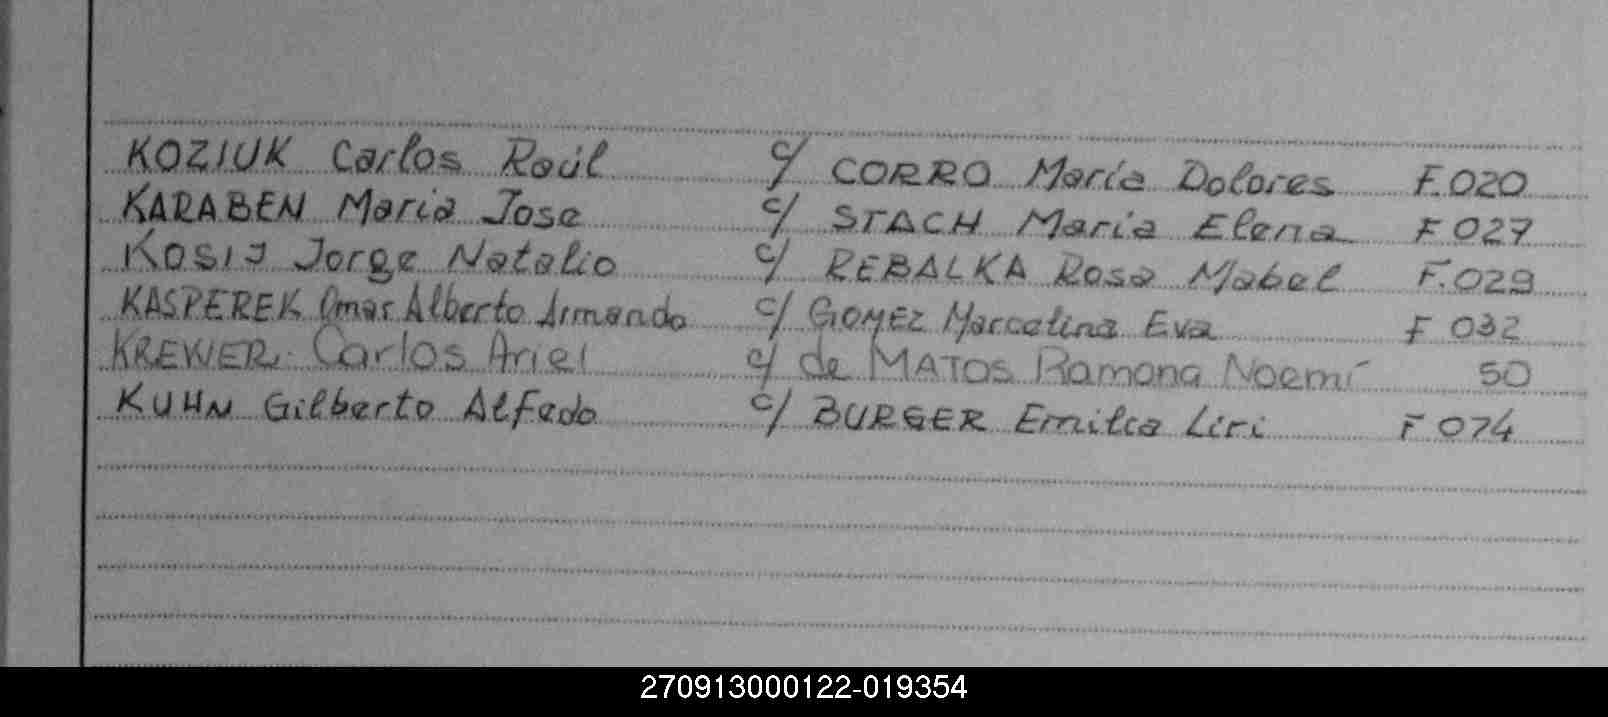 KOZIUK Carlos Raúl c/ CORRO María Dolores F.020
KARABEN Maria Jose c/ STACH Maria Elena F 027
KOSIJ Jorge Natalio c/ REBALKA Rosa Mabel F.029
KASPEREK Omar Alberto Armando c/ GOMEZ Marcelina Eva F 032
KREWER Carlos Ariel c/ de MATOS Ramona Noemí 50
KUHN Gilberto Alfedo c/ BURGER Emilia Liri F 074
270913000122-019354